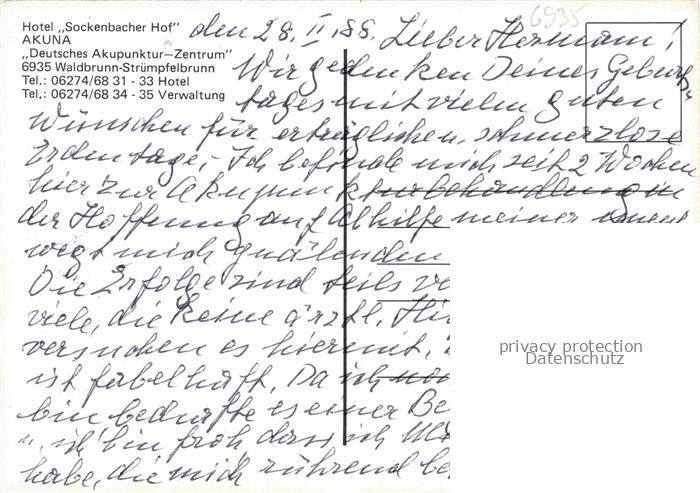 6935
Hotel „Sockenbacher Hof"
AKUNA
„Deutsches Akupunktur—Zentrum"
6935 Waldbrunn-Strümpfelbrunn
Tel.: 06274/68 31 - 33 Hotel
Tel.: 06274/68 34 - 35 Verwaltung
den 28. II. 88. Lieber Hermann!
Wir gedenken Deines Geburts
tages mit vielen guten
Wünschen für erträglichen, schmerzlose
Erdentage, - Ich befinde mich seit 2 Wochen
hier zur Akupunkturbehandlung in
der Hoffnung auf Abhilfe meiner
wegt mich quälenden
Die Erfolge sind teils ve
viele, die keine ärztl. Hi
versuchen es hiermit,
ist fabelhaft. Da ich
bin bedürfte es einer Be
ich bin froh dass ich
habe, die mich rührend be
privacy protection
Datenschutz